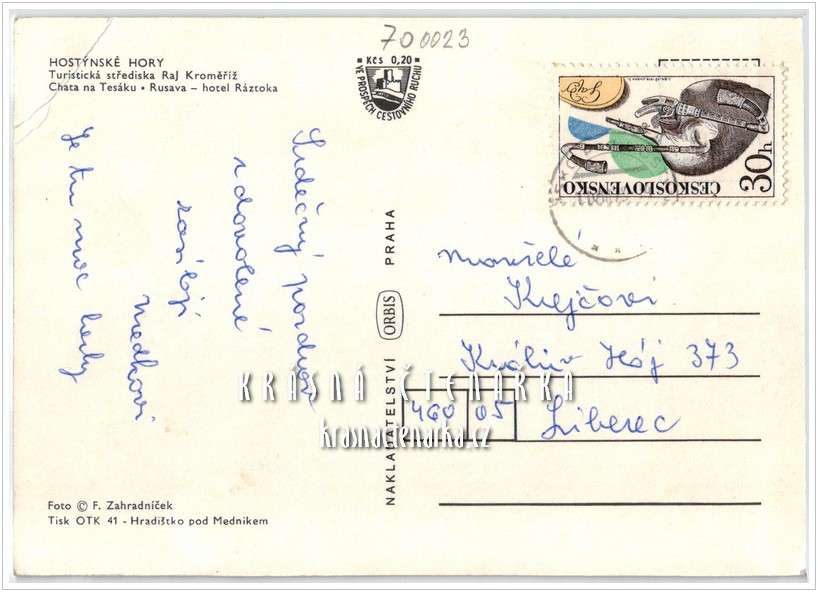 700023
HOSTÝNSKÉ HORY
Turistická střediska RaJ Kroměříž
Chata na Tesáku • Rusava – hotel Ráztoka
Kčs 0,20
VE PROSPĚCH CESTOVNÍHO RUCHU
ČESKOSLOVENSKO
30h
Srdečný pozdrav
z dovolené
zasílají
Medkovi
Je tu moc hezky
NAKLADATELSTVÍ ORBIS PRAHA
manželé
Krejčovi
Králův Háj 373
460 05 Liberec
KRÁSNÁ ČTENÁŘKA
krasnactenarka.cz
Foto © F. Zahradníček
Tisk OTK 41 - Hradištko pod Medníkem